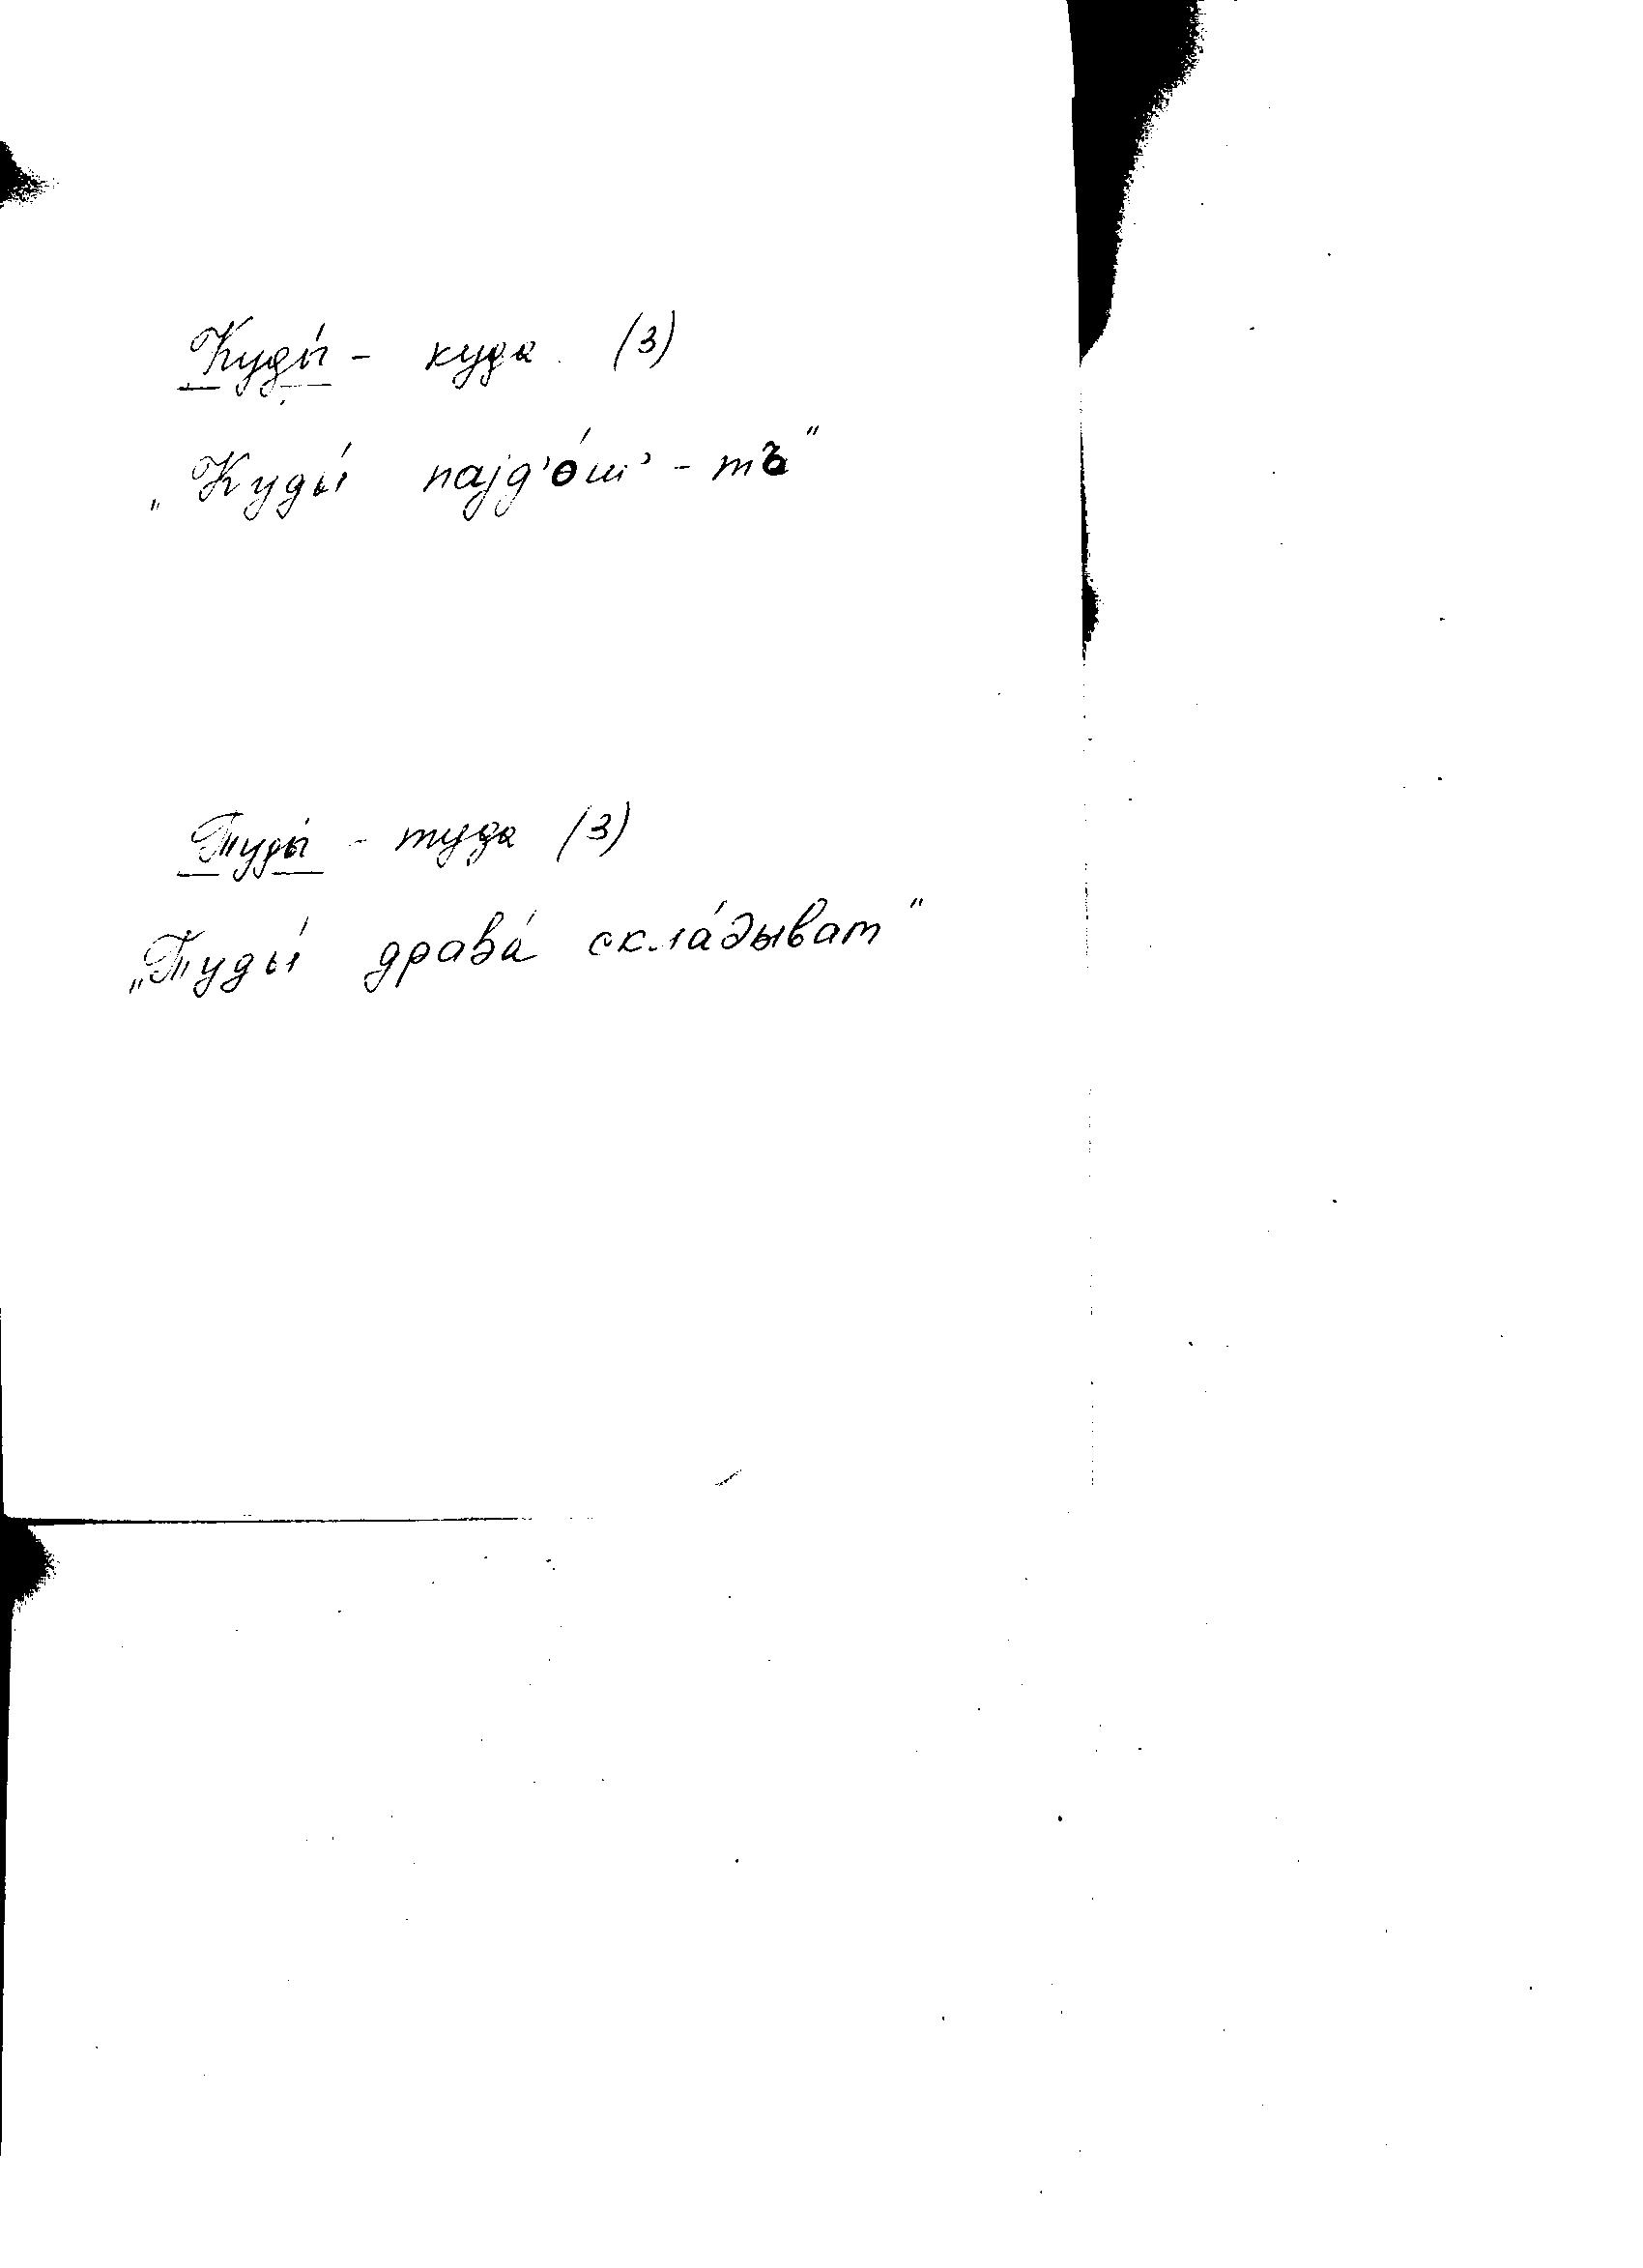 Куды́ - куда. (3)
„Куды́ паjд'о́ш' - тъ"
Туды́ - туда (3)
„Туды́ драва́ скла́дыват"